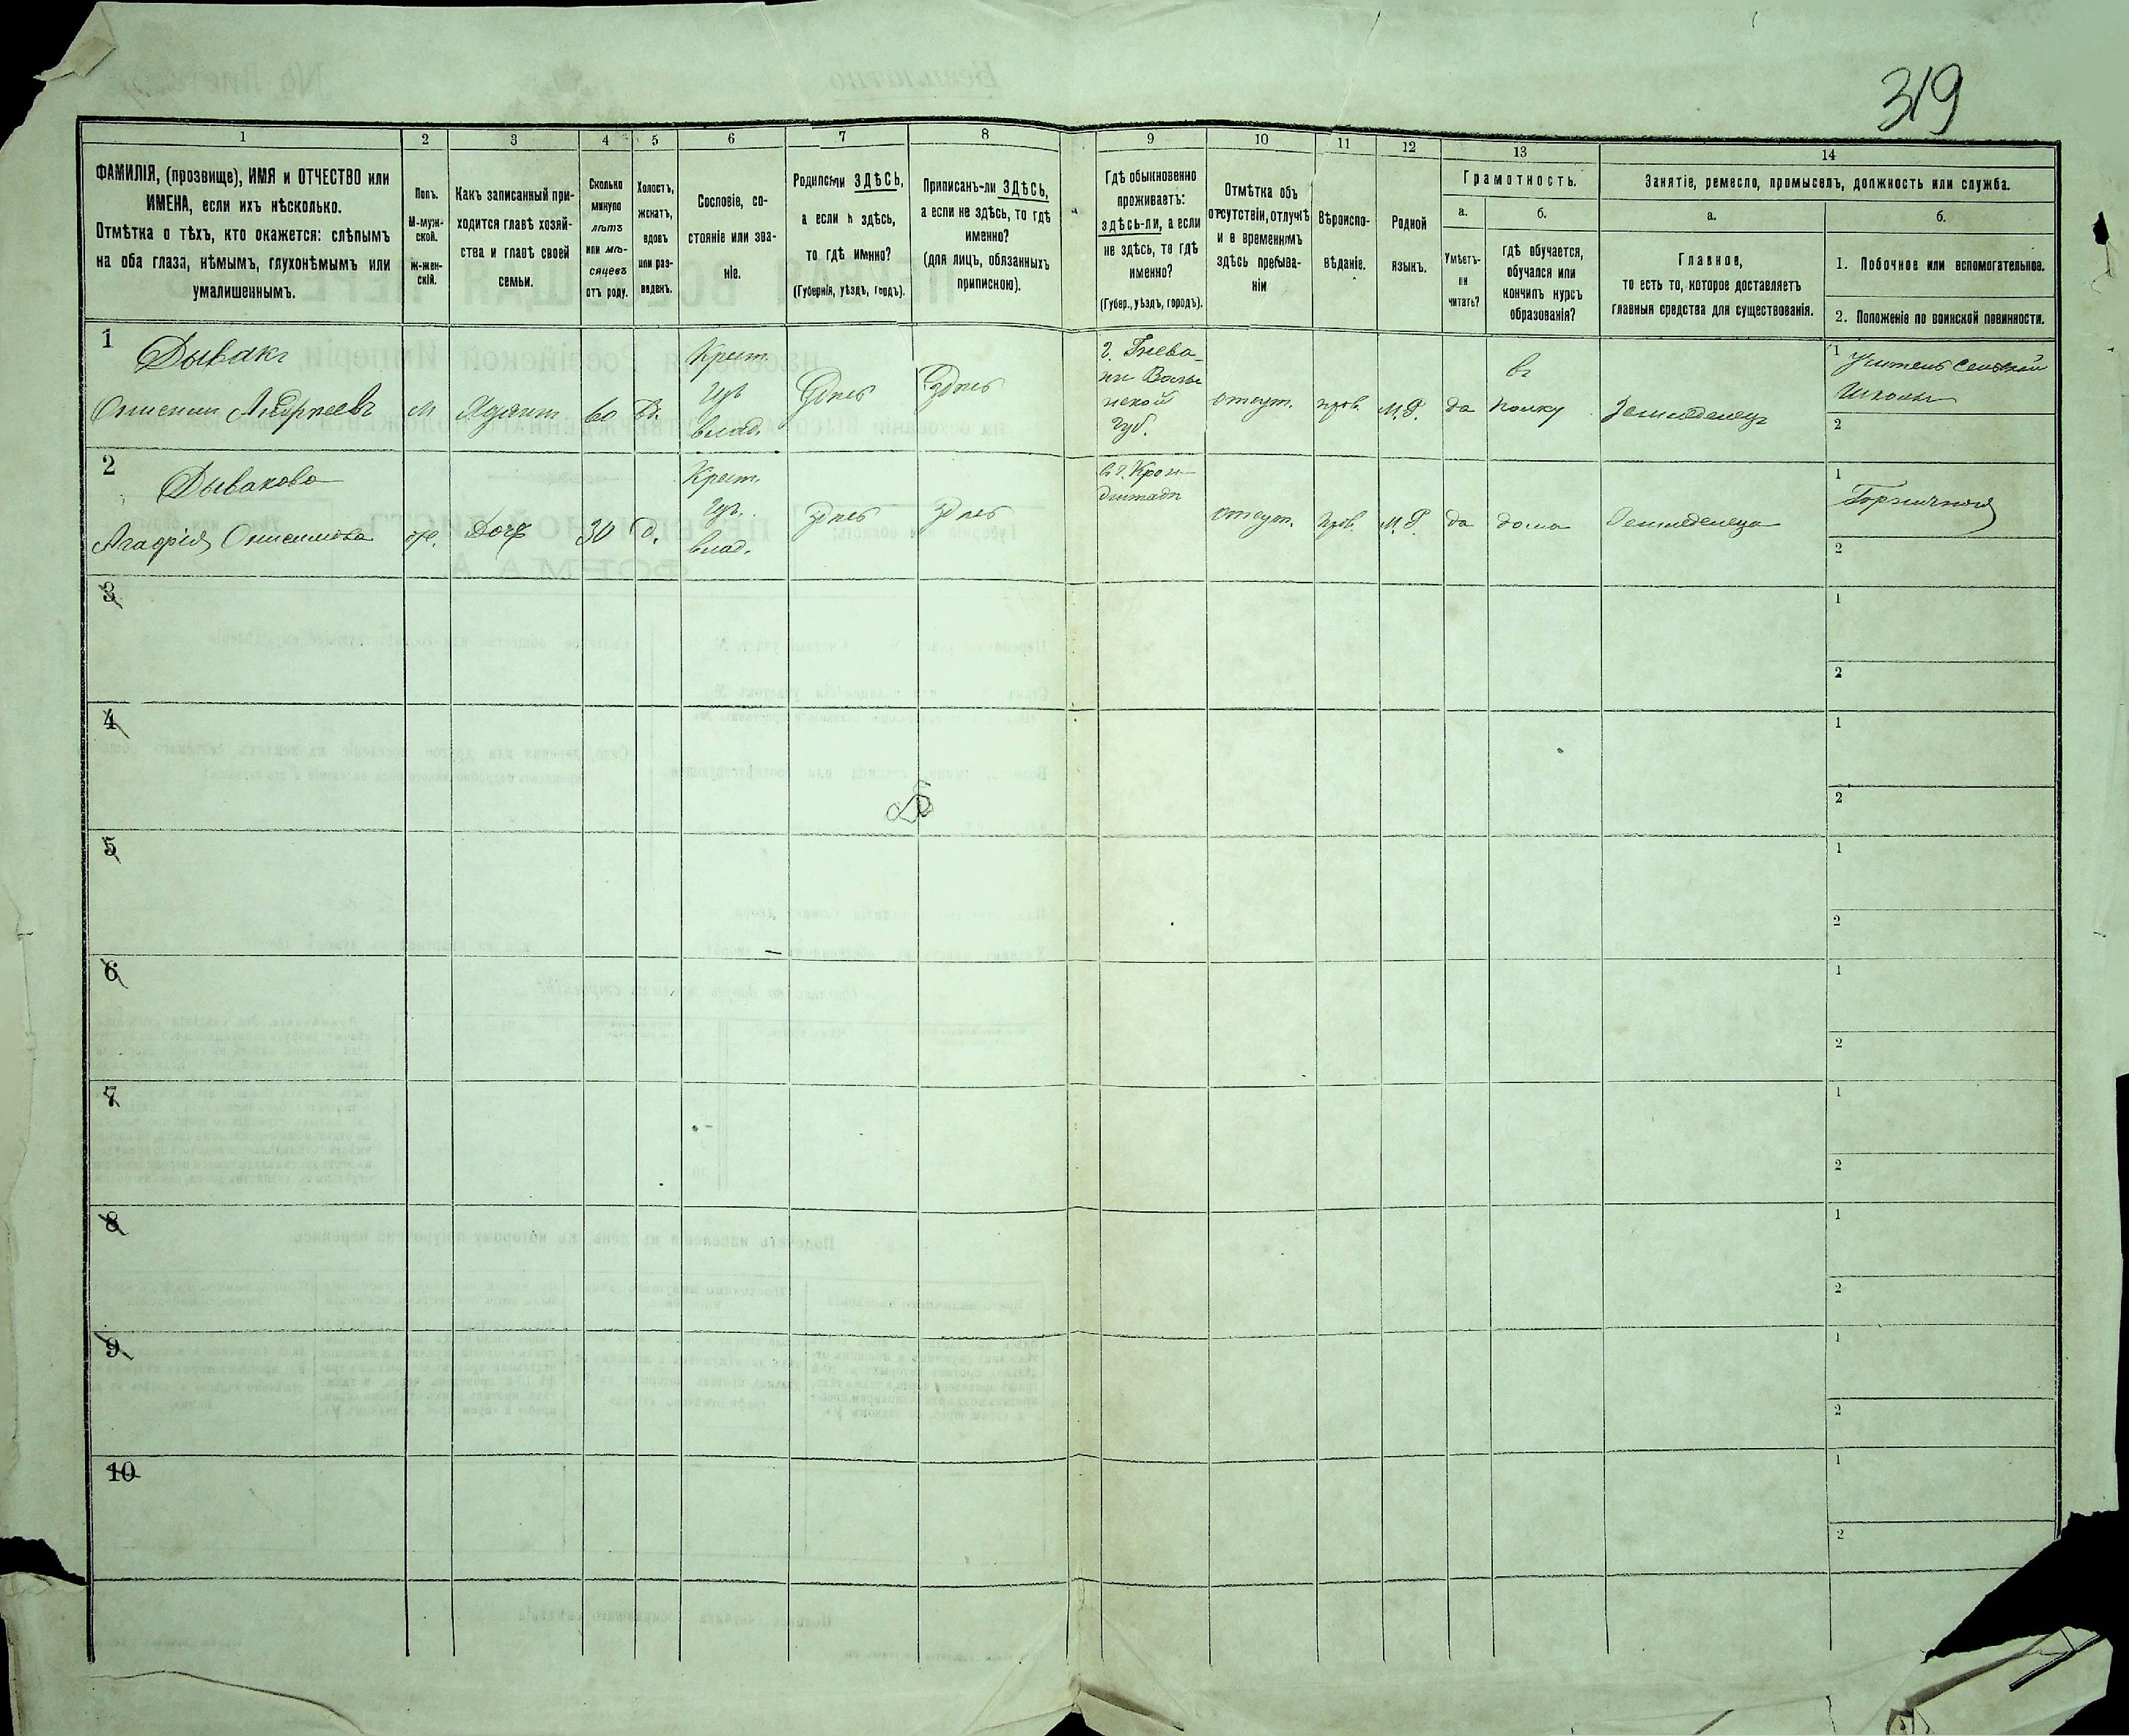 319
1 2 3 4 5 6 7 8 9 10 11 12 13 14
ФАМИЛІЯ, (прозвище), ИМЯ и ОТЧЕСТВО или
ИМЕНА, если ихъ нѣсколько.
Отмѣтка о тѣхъ, кто окажется: слѣпымъ
на оба глаза, нѣмымъ, глухонѣмымъ или
умалишеннымъ.
Полъ.
М-муж-
ской.
Ж-жен-
скій.
Какъ записанный при-
ходится главѣ хозяй-
ства и главѣ своей
семьи.
Сколько
минуло
лѣтъ
или мѣ-
сяцевъ
отъ роду.
Холостъ,
женатъ,
вдовъ
или раз-
веденъ.
Сословіе, со-
стояніе или зва-
ніе.
Родился-ли ЗДѢСЬ,
а если н здѣсь,
то гдѣ именно?
(Губернія, уѣздъ, городъ).
Приписанъ-ли ЗДѢСЬ,
а если не здѣсь, то гдѣ
именно?
(для лицъ, обязанныхъ
припискою).
Гдѣ обыкновенно
проживаетъ:
здѣсь-ли, а если
не здѣсь, то гдѣ
именно?
(Губер., уѣздъ, городъ).
Отмѣтка объ
отсутствіи, отлучкѣ
и о временномъ
здѣсь пребыва-
ніи
Вѣроиспо-
вѣданіе.
Родной
языкъ.
Грамотность.
а.
Умѣетъ-
ли
читать?
б.
Гдѣ обучается,
обучался или
кончилъ курсъ
образованія?
Занятіе, ремесло, промыселъ, должность или служба.
а.
Главное,
то есть то, которое доставляетъ
главныя средства для существованія.
б.
1. Побочное или вспомогательное.
2. Положеніе по воинской повинности.
1
Дывакъ
Онисим Андреевъ
м
60
Крест.
изъ
влад.
Здѣсь
Здѣсь
г.
Волы
нской
губ.
отсут.
прав.
М.Р.
да
въ
полку
Земледелецъ
1 Учитель сельской
Школы
2
2
Дывакова
Агафія Онисимова
ж.
Дочь
30
д.
Крест.
изъ.
влад.
Здѣсь
Здѣсь
в г. Крон
штадт
отсут.
прав.
М.Р.
да
дома
Земледелецъ
1
Горничной
2
3
1
2
4
1
2
5
1
2
6
1
2
7
1
2
8
1
2
9
1
2
10
1
2